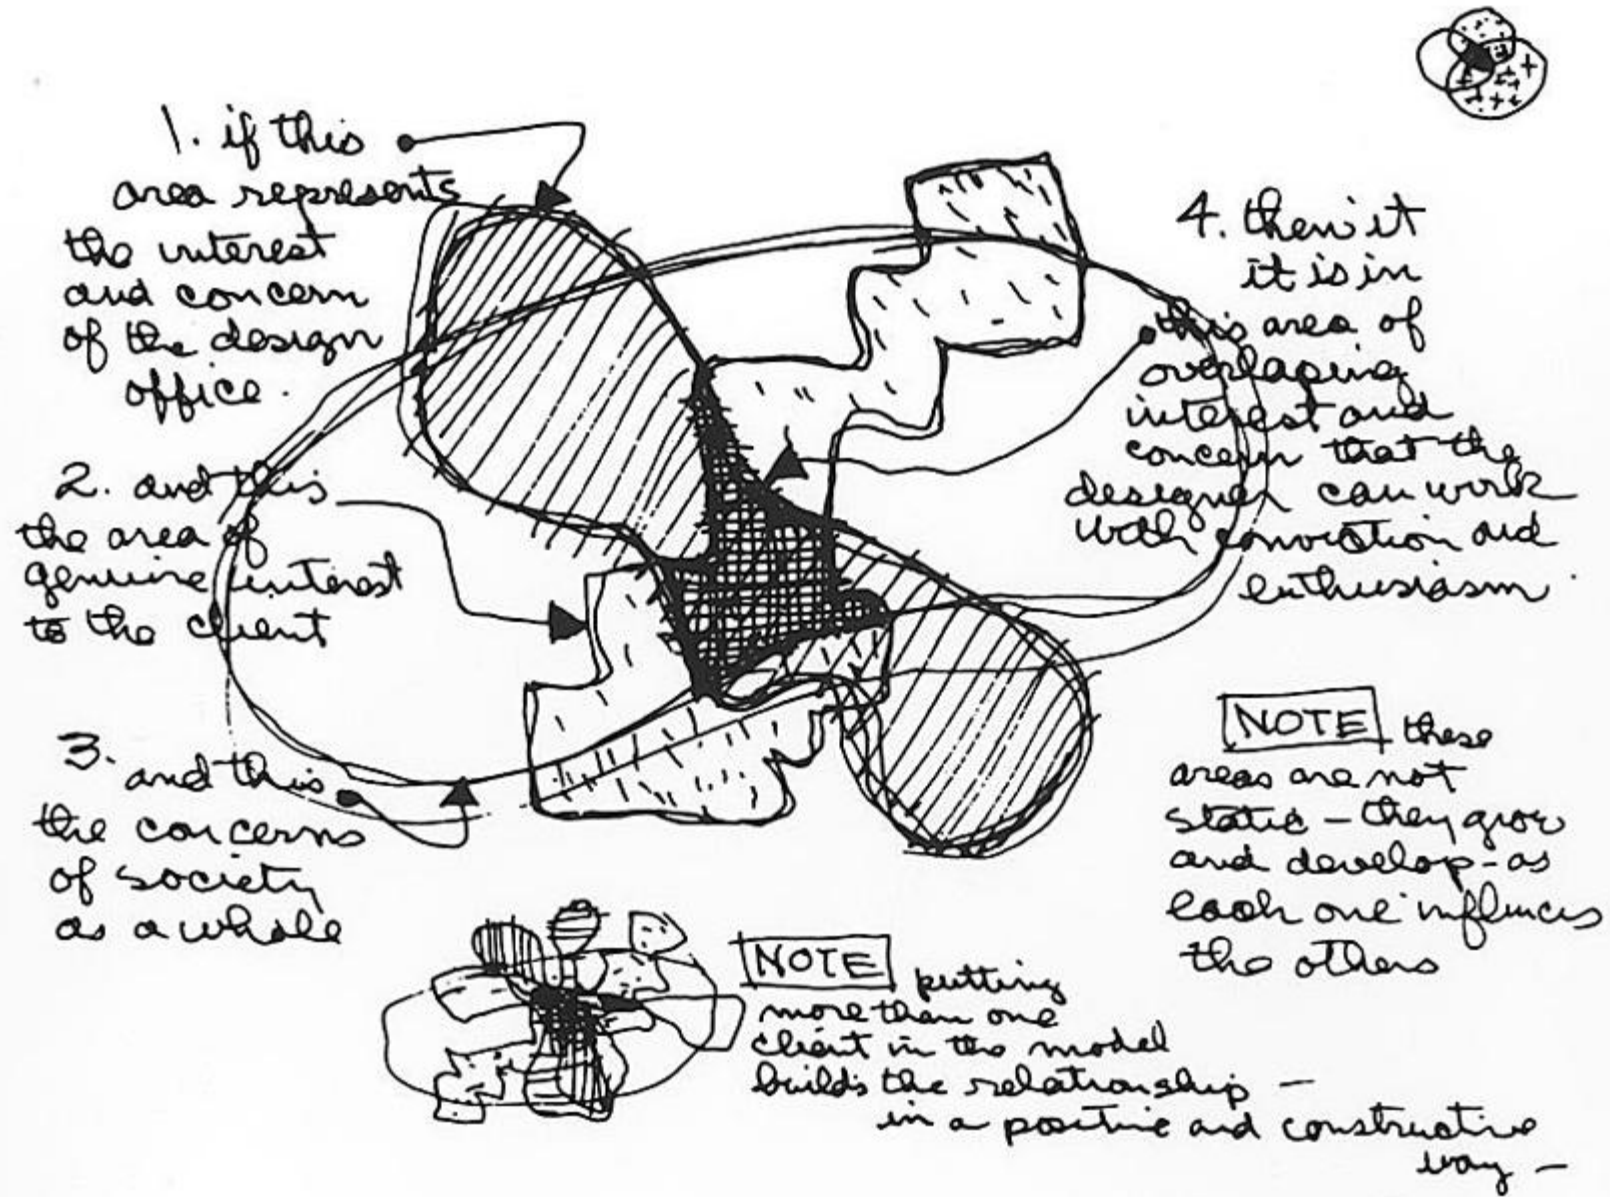 1. if this
area represents
the interest
and concern
of the design
office.
2. and this
the area of
genuine interest
to the client
3. and this
the concerns
of society
as a whole
4. then it
it is in
this area of
overlaping
interest and
concern that the
designer can work
with conviction and
enthusiasm.
NOTE these
areas are not
static – they grow
and develop – as
each one influences
the others
NOTE putting
more than one
client in the model
builds the relationship –
in a positive and constructive
way –